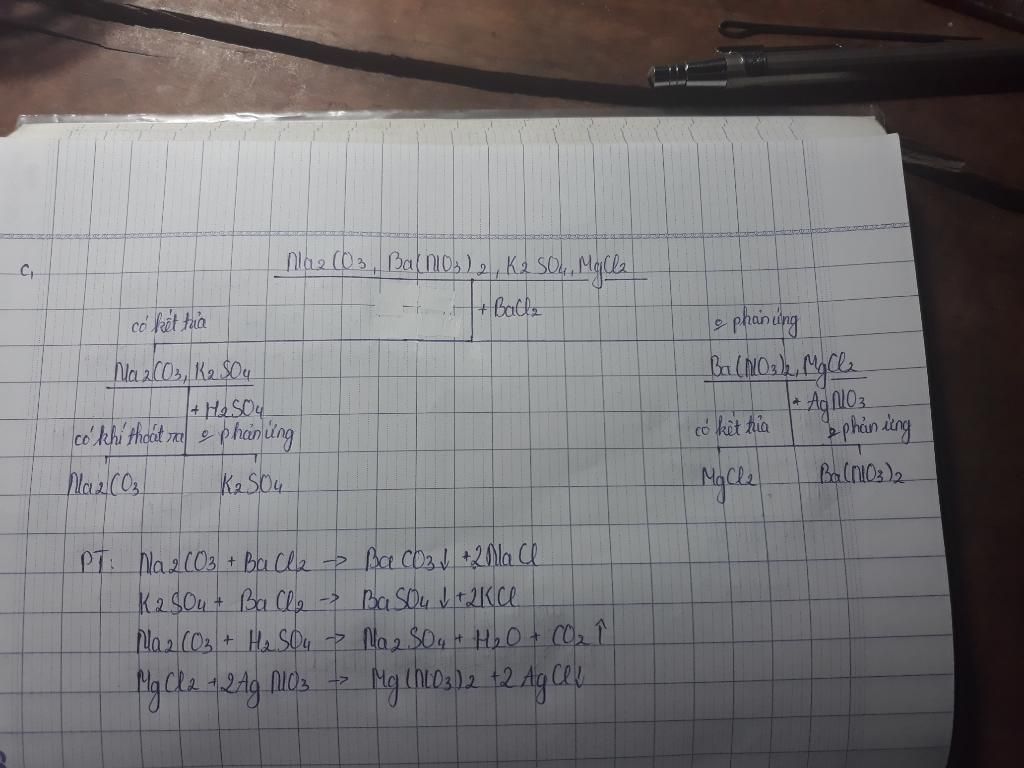 c,
Na2CO3, Ba(NO3)2, K2SO4, MgCl2
+ BaCl2
có kết tủa
ko phản ứng
Na2CO3, K2SO4
Ba(NO3)2, MgCl2
+ H2SO4
+ AgNO3
có khí thoát ra ko phản ứng
có kết tủa ko phản ứng
Na2CO3 K2SO4
MgCl2 Ba(NO3)2
PT: Na2CO3 + BaCl2 → BaCO3↓ +2NaCl
K2SO4 + BaCl2 → BaSO4↓ +2KCl
Na2CO3 + H2SO4 → Na2SO4 + H2O + CO2↑
MgCl2 +2AgNO3 → Mg(NO3)2 +2AgCl↓